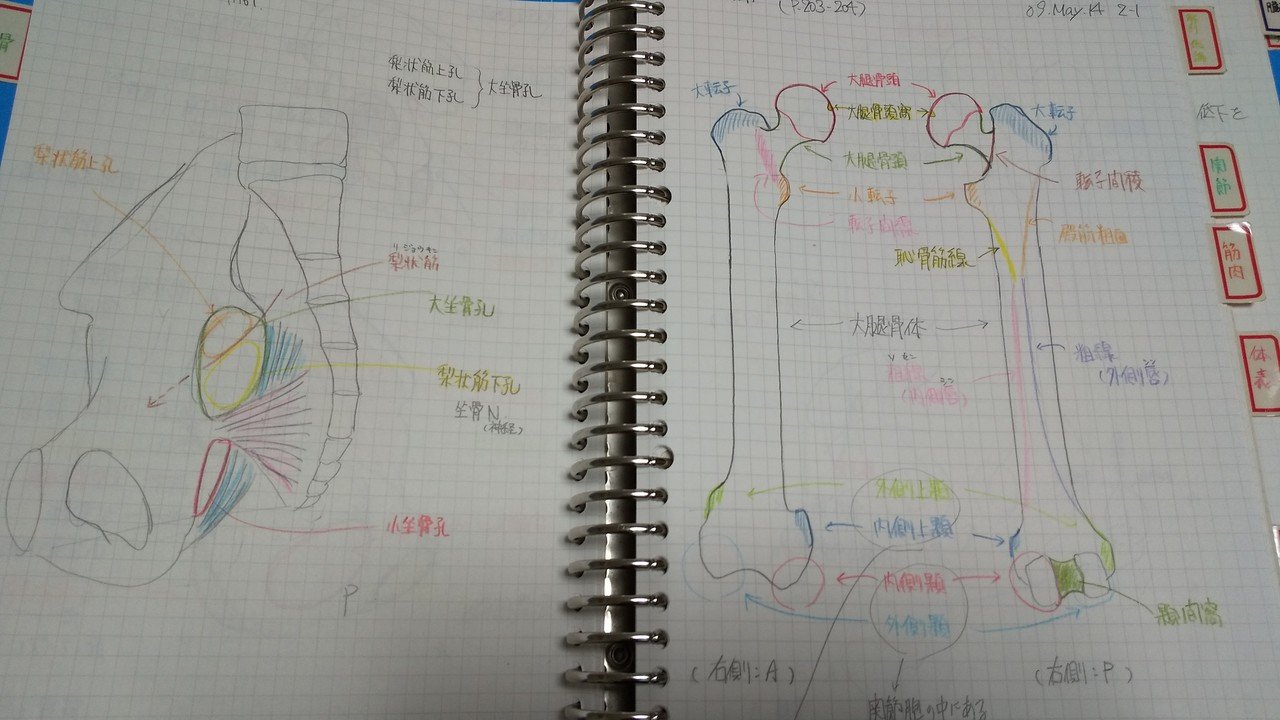 骨
梨状筋上孔
梨状筋下孔
大坐骨孔
梨状筋上孔
リジョウキン
梨状筋
大坐骨孔
梨状筋下孔
坐骨N
(神経)
小坐骨孔
P
(P203-204)
09.May.14 2-1
大転子
大腿骨頭
大転子
大腿骨頭
小転子
転子間稜
転子間線
臀筋粗面
恥骨筋線
大腿骨体
粗線
(内側唇)
粗線
(外側唇)
外側上顆
内側上顆
内側顆
外側顆
顆間窩
(右側:A)
(右側:P)
関節包の中にある
低下と
関節
筋肉
体表